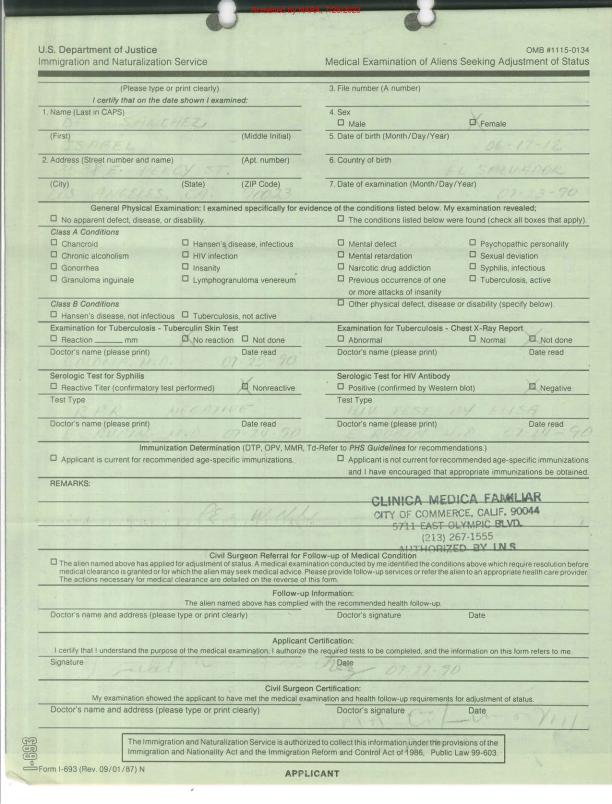 U.S. Department of Justice
Immigration and Naturalization Service
OMB #1115-0134
Medical Examination of Aliens Seeking Adjustment of Status
(Please type or print clearly)
I certify that on the date shown I examined:
3. File number (A number)
1. Name (Last in CAPS)
SANCHEZ
4. Sex
Male
Female
(First) (Middle Initial)
ISABEL
5. Date of birth (Month/Day/Year)
2. Address (Street number and name) (Apt. number)
6. Country of birth
EL SALVADOR
(City) (State) (ZIP Code)
7. Date of examination (Month/Day/Year)
General Physical Examination: I examined specifically for evidence of the conditions listed below. My examination revealed;
No apparent defect, disease, or disability.
The conditions listed below were found (check all boxes that apply).
Class A Conditions
Chancroid Hansen's disease, infectious Mental defect Psychopathic personality
Chronic alcoholism HIV infection Mental retardation Sexual deviation
Gonorrhea Insanity Narcotic drug addiction Syphilis, infectious
Granuloma inguinale Lymphogranuloma venereum Previous occurrence of one Tuberculosis, active
or more attacks of insanity
Class B Conditions
Other physical defect, disease or disability (specify below).
Hansen's disease, not infectious Tuberculosis, not active
Examination for Tuberculosis - Tuberculin Skin Test
Examination for Tuberculosis - Chest X-Ray Report
Reaction ______ mm No reaction Not done
Abnormal Normal Not done
Doctor's name (please print) Date read
Doctor's name (please print) Date read
Serologic Test for Syphilis
Serologic Test for HIV Antibody
Reactive Titer (confirmatory test performed) Nonreactive
Positive (confirmed by Western blot) Negative
Test Type
Test Type
RPR NEGATIVE
HIV TEST BY ELISA
Doctor's name (please print) Date read
Doctor's name (please print) Date read
Immunization Determination (DTP, OPV, MMR, Td-Refer to PHS Guidelines for recommendations.)
Applicant is current for recommended age-specific immunizations.
Applicant is not current for recommended age-specific immunizations
and I have encouraged that appropriate immunizations be obtained.
REMARKS:
CLINICA MEDICA FAMILIAR
CITY OF COMMERCE, CALIF. 90044
5711 EAST OLYMPIC BLVD.
(213) 267-1555
AUTHORIZED BY I.N.S.
Civil Surgeon Referral for Follow-up of Medical Condition
The alien named above has applied for adjustment of status. A medical examination conducted by me identified the conditions above which require resolution before
medical clearance is granted or for which the alien may seek medical advice. Please provide follow-up services or refer the alien to an appropriate health care provider.
The actions necessary for medical clearance are detailed on the reverse of this form.
Follow-up Information:
The alien named above has complied with the recommended health follow-up.
Doctor's name and address (please type or print clearly) Doctor's signature Date
Applicant Certification:
I certify that I understand the purpose of the medical examination, I authorize the required tests to be completed, and the information on this form refers to me.
Signature Date
Civil Surgeon Certification:
My examination showed the applicant to have met the medical examination and health follow-up requirements for adjustment of status.
Doctor's name and address (please type or print clearly) Doctor's signature Date
The Immigration and Naturalization Service is authorized to collect this information under the provisions of the
Immigration and Nationality Act and the Immigration Reform and Control Act of 1986, Public Law 99-603.
Form I-693 (Rev. 09/01/87) N
APPLICANT